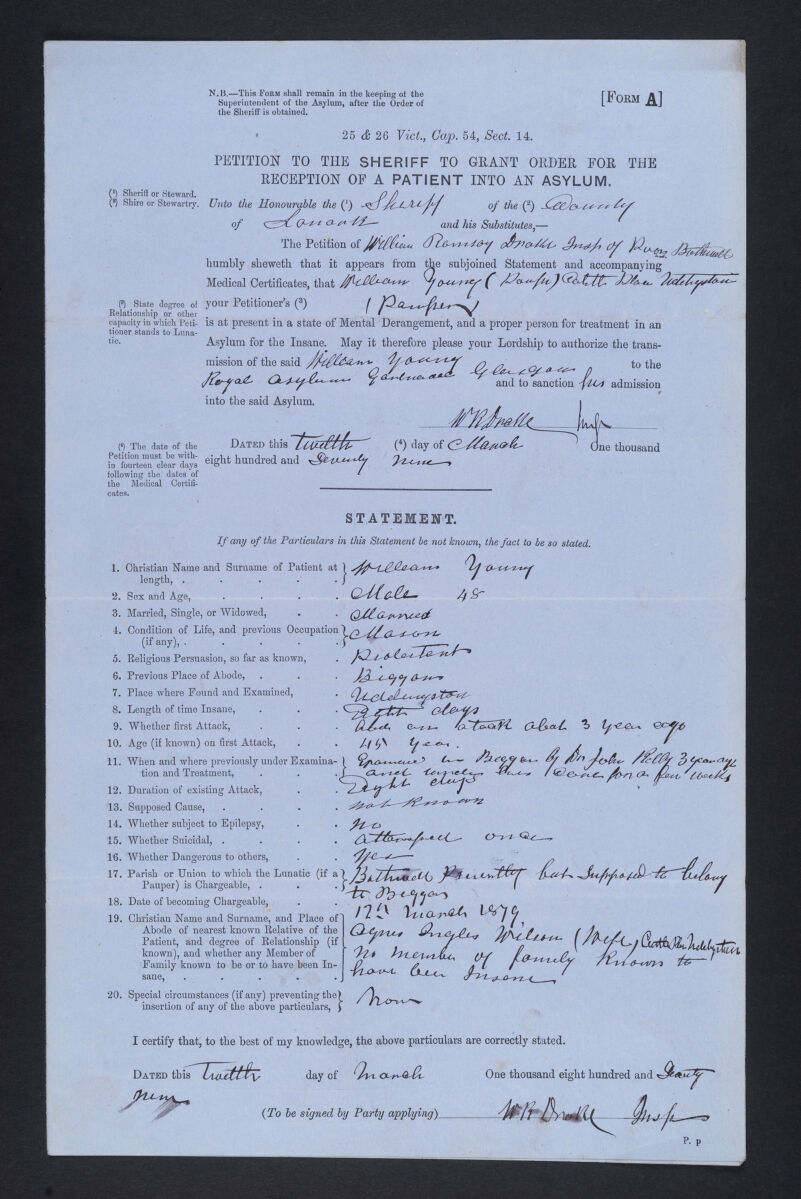 N.B.—This Form shall remain in the keeping of the
Superintendent of the Asylum, after the Order of
the Sheriff is obtained.
[Form A]
25 & 26 Vict., Cap. 54, Sect. 14.
PETITION TO THE SHERIFF TO GRANT ORDER FOR THE
RECEPTION OF A PATIENT INTO AN ASYLUM.
(1) Sheriff or Steward.
(2) Shire or Stewartry.
Unto the Honourable the (1) Sheriff of the (2) County
of Lanark and his Substitutes,—
The Petition of William Ramsay Drake Insp of Poor Bothwell
humbly sheweth that it appears from the subjoined Statement and accompanying
Medical Certificates, that William Young (Pauper) Uddingston
(3) State degree of
Relationship or other
capacity in which Peti-
tioner stands to Luna-
tic.
your Petitioner's (3) (Pauper)
is at present in a state of Mental Derangement, and a proper person for treatment in an
Asylum for the Insane. May it therefore please your Lordship to authorize the trans-
mission of the said William Young to the
Royal Asylum Gartnavel Glasgow and to sanction his admission
into the said Asylum.
W R Drake Insp
(4) The date of the
Petition must be with-
in fourteen clear days
following the dates of
the Medical Certifi-
cates.
Dated this twelfth (4) day of March One thousand
eight hundred and Seventy nine
STATEMENT.
If any of the Particulars in this Statement be not known, the fact to be so stated.
1. Christian Name and Surname of Patient at length, William Young
2. Sex and Age, Male 48
3. Married, Single, or Widowed, Married
4. Condition of Life, and previous Occupation (if any), Mason
5. Religious Persuasion, so far as known, Protestant
6. Previous Place of Abode, Biggar
7. Place where Found and Examined, Uddingston
8. Length of time Insane, Eight days
9. Whether first Attack, had an attack about 3 year ago
10. Age (if known) on first Attack, 45 year
11. When and where previously under Examina- Examined in Biggar by Dr John Kelly 3 year ago
tion and Treatment, and under his care for a few weeks
12. Duration of existing Attack, Eight days
13. Supposed Cause, not known
14. Whether subject to Epilepsy, No
15. Whether Suicidal, attempted once
16. Whether Dangerous to others, Yes
17. Parish or Union to which the Lunatic (if a Bothwell presently but supposed to belong
Pauper) is Chargeable, to Biggar
18. Date of becoming Chargeable, 12th March 1879
19. Christian Name and Surname, and Place of
Abode of nearest known Relative of the Agnes Inglis Wilson (Wife) Uddingston
Patient, and degree of Relationship (if
known), and whether any Member of No member of family known to
Family known to be or to have been In- have been Insane
sane,
20. Special circumstances (if any) preventing the None
insertion of any of the above particulars,
I certify that, to the best of my knowledge, the above particulars are correctly stated.
Dated this twelfth day of March One thousand eight hundred and Seventy
nine
(To be signed by Party applying) W R Drake Insp
P. p